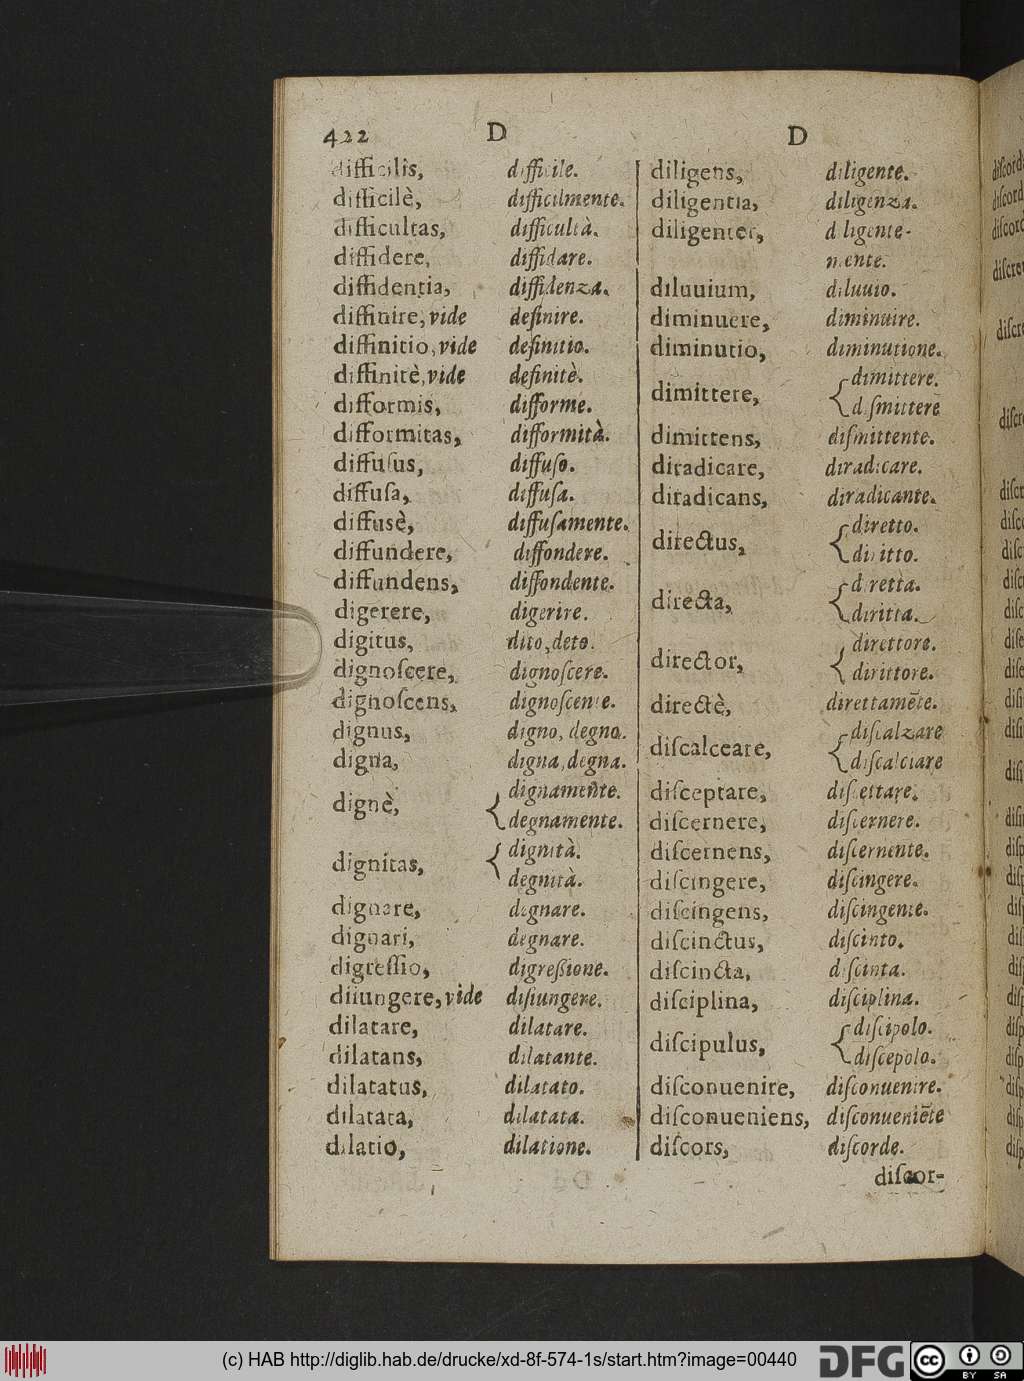 422 D D
difficilis, difficile.
difficilè, difficilmente.
difficultas, difficultà.
diffidere, diffidare.
diffidentia, diffidenza.
diffinire, vide definire.
diffinitio, vide definitio.
diffinitè, vide definitè.
difformis, difforme.
difformitas, difformità.
diffuſus, diffuſo.
diffuſa, diffuſa.
diffusè, diffuſamente.
diffundere, diffondere.
diffundens, diffondente.
digerere, digerire.
digitus, dito, deto.
dignoſcere, dignoſcere.
dignoſcens, dignoſcente.
dignus, digno, degno.
digna, digna, degna.
dignè, { dignamente.
degnamente.
dignitas, { dignità.
degnità.
dignare, degnare.
dignari, degnare.
digreſſio, digreßione.
diiungere, vide diſiungere.
dilatare, dilatare.
dilatans, dilatante.
dilatatus, dilatato.
dilatata, dilatata.
dilatio, dilatione.
diligens, diligente.
diligentia, diligenza.
diligenter, diligente-
mente.
diluuium, diluuio.
diminuere, diminuire.
diminutio, diminutione.
dimittere, { dimittere.
diſmittere
dimittens, diſmittente.
diradicare, diradicare.
diradicans, diradicante.
directus, { diretto.
diritto.
directa, { diretta.
diritta.
director, { direttore.
dirittore.
directè, direttamẽte.
diſcalceare, { diſcalzare
diſcalciare
diſceptare, diſcettare.
diſcernere, diſcernere.
diſcernens, diſcernente.
diſcingere, diſcingere.
diſcingens, diſcingente.
diſcinctus, diſcinto.
diſcincta, diſcinta.
diſciplina, diſciplina.
diſcipulus, { diſcipolo.
diſcepolo.
diſconuenire, diſconuenire.
diſconueniens, diſconueniẽte
diſcors, diſcorde.
diſcor-
(c) HAB http://diglib.hab.de/drucke/xd-8f-574-1s/start.htm?image=00440 DFG cc BY SA